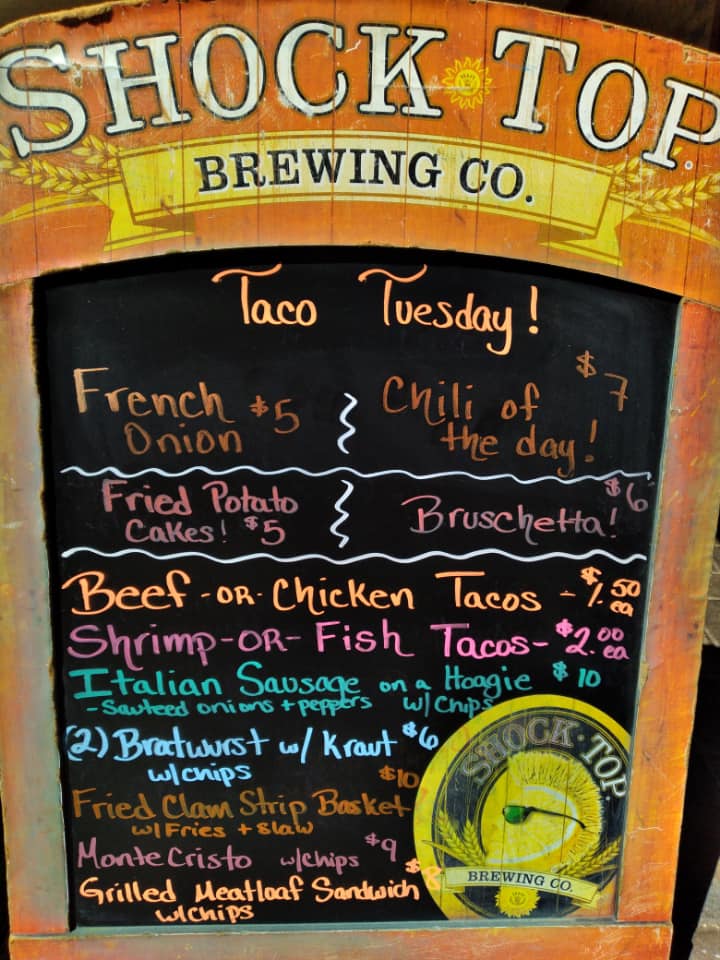 SHOCK TOP
BREWING CO.
Taco Tuesday!
French Onion $5
Chili of the day! $7
Fried Potato Cakes! $5
Bruschetta! $6
Beef -OR- Chicken Tacos - $1.50 ea
Shrimp -OR- Fish Tacos - $2.00 ea
Italian Sausage on a Hoagie $10
- Sauteed onions + peppers w/ Chips
(2) Bratwurst w/ Kraut $6
w/chips
Fried Clam Strip Basket $10
w/ Fries + Slaw
Monte Cristo w/chips $9
Grilled Meatloaf Sandwich $8
w/chips
SHOCK·TOP
BREWING CO.